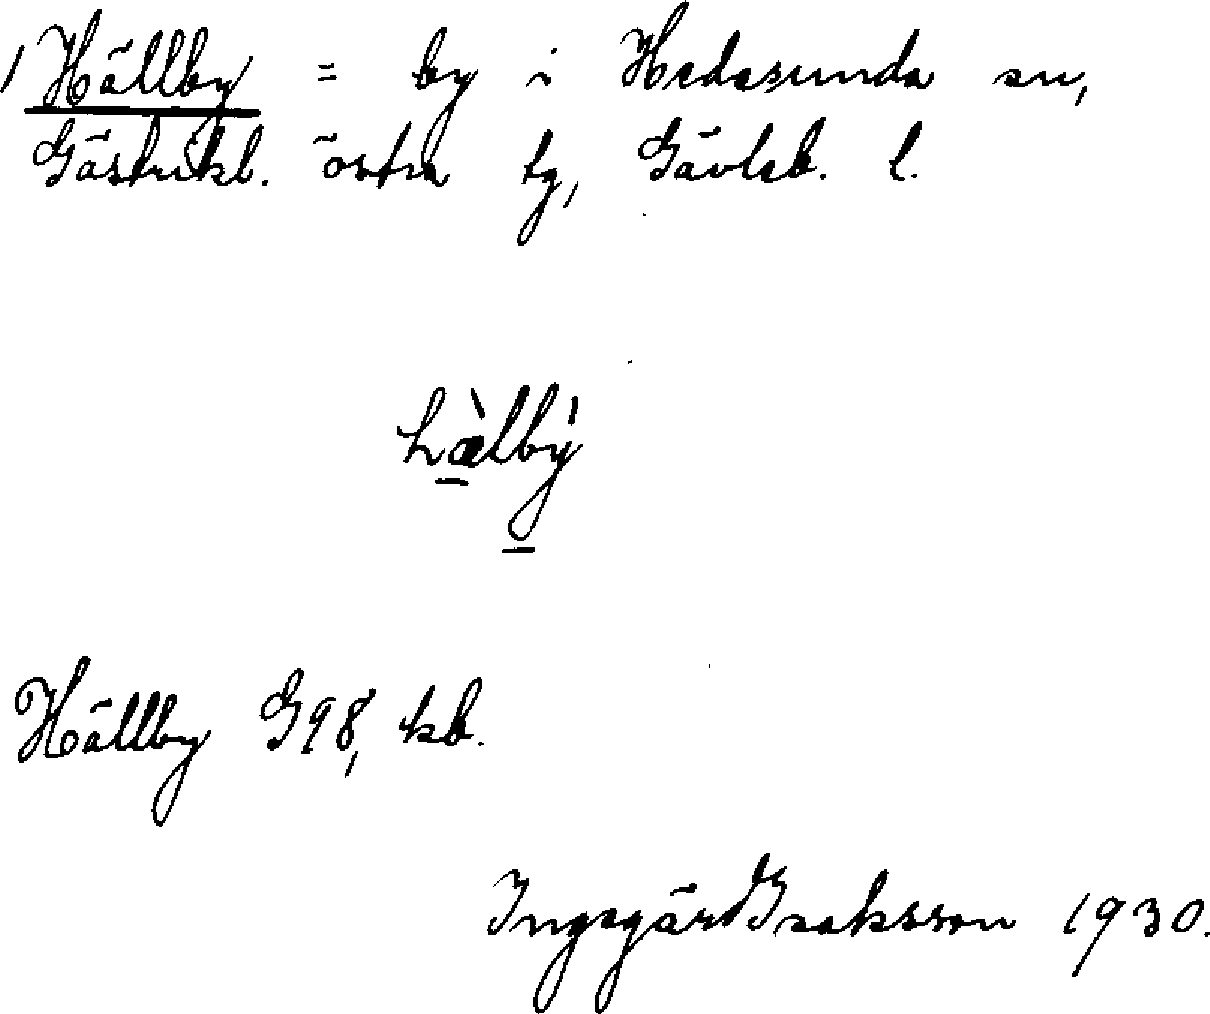 Hällby = by i Hedesunda sn,
Gästrikl. östra tg, Gävleb. l.
hæ̀lbý
Hällby G98, kb.
Ingegärd Isaksson 1930.